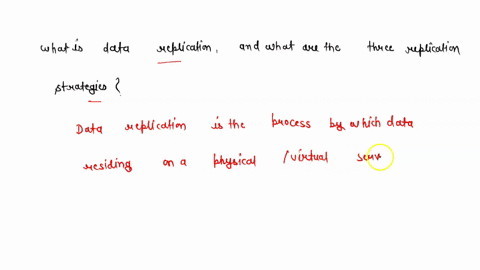 what is data replication, and what are the three replication
strategies ?
Data replication is the process by which data
residing on a physical /virtual serv